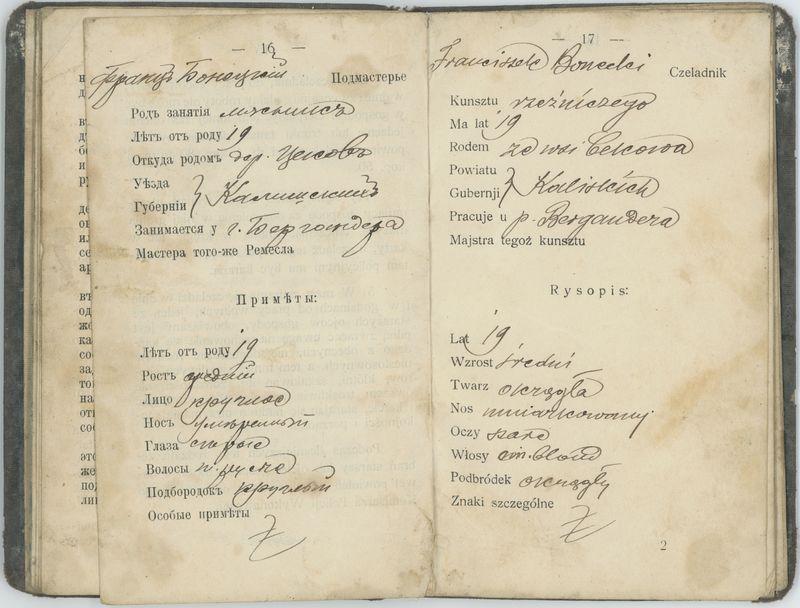 — 16 —
Францъ Бонецкій Подмастерье
Родъ занятія мясникъ
Лѣтъ отъ роду 19
Откуда родомъ дер. Цековъ
Уѣзда
Губерніи } Калишскихъ
Занимается у г. Бергандера
Мастера того-же Ремесла
Примѣты:
Лѣтъ отъ роду 19
Ростъ средній
Лицо круглое
Носъ умѣренный
Глаза сѣрые
Волосы т. русые
Подбородокъ круглый
Особые примѣты
— 17 —
Franciszek Bonecki Czeladnik
Kunsztu rzeźniczego
Ma lat 19
Rodem ze wsi Cekowa
Powiatu
Gubernji } Kaliskich
Pracuje u p. Bergandera
Majstra tegoż kunsztu
Rysopis:
Lat 19
Wzrost średni
Twarz okrągła
Nos umiarkowany
Oczy szare
Włosy cm. blond
Podbródek okrągły
Znaki szczególne
2